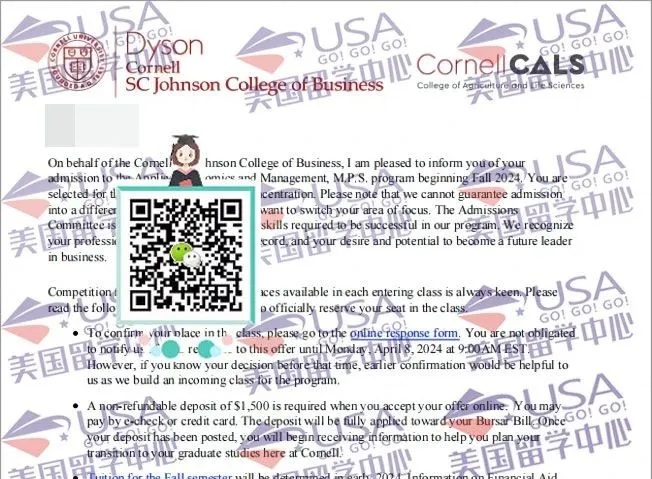 CORNELL UNIVERSITY
Dyson
Cornell
SC Johnson College of Business
CornellCALS
College of Agriculture and Life Sciences
USA
GO! GO! GO!
美国留学中心
On behalf of the Cornell hnson College of Business, I am pleased to inform you of your
admission to the Applie omics and Management, M.P.S. program beginning Fall 2024. You are
selected for th centration. Please note that we cannot guarantee admission
into a differen want to switch your area of focus. The Admissions
Committee is skills required to be successful in our program. We recognize
your professio cord, and your desire and potential to become a future leader
in business.
Competition f ces available in each entering class is always keen. Please
read the follo o officially reserve your seat in the class.
• To confirm your place in the class, please go to the online response form. You are not obligated
to notify us re to this offer until Monday, April 8, 2024 at 9:00AM EST.
However, if you know your decision before that time, earlier confirmation would be helpful to
us as we build an incoming class for the program.
• A non-refundable deposit of $1,500 is required when you accept your offer online. You may
pay by e-check or credit card. The deposit will be fully applied toward your Bursar Bill. Once
your deposit has been posted, you will begin receiving information to help you plan your
transition to your graduate studies here at Cornell.
• Tuition for the Fall semester will be determined in early 2024. Information on Financial Aid